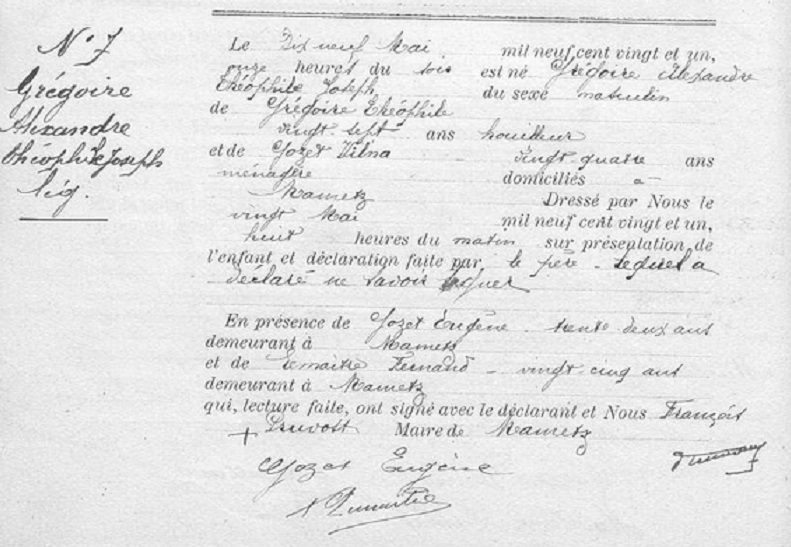 N° 7
Grégoire
Alexandre
Théophile Joseph
lég.
Le Dix neuf Mai mil neuf cent vingt et un,
onze heures du soir est né Grégoire Alexandre
Théophile Joseph du sexe masculin
de Grégoire Théophile
vingt sept ans houilleur
et de Gozet Vilna vingt quatre ans
ménagère domiciliés à
Mametz Dressé par Nous le
vingt Mai mil neuf cent vingt et un,
huit heures du matin sur présentation de
l'enfant et déclaration faite par le père lequel a
déclaré ne savoir signer
En présence de Gozet Eugène trente deux ans
demeurant à Mametz
et de Lemaitre Fernand vingt cinq ans
demeurant à Mametz
qui, lecture faite, ont signé avec le déclarant et Nous François
Pruvost Maire de Mametz
Gozet Eugène